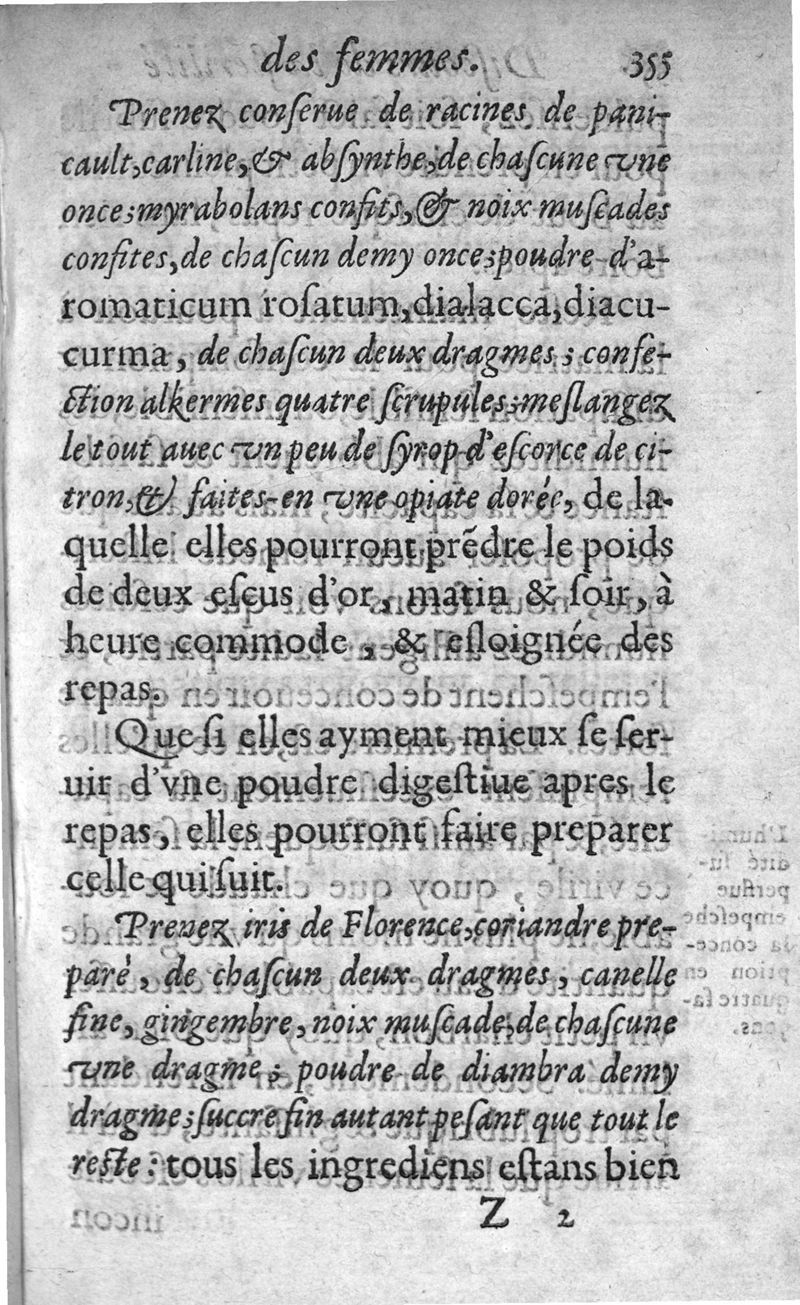 des femmes. 355
Prenez conſerue de racines de pani-
cault, carline, & abſynthe, de chaſcune vne
once; myrabolans confits, & noix muſcades
confites, de chaſcun demy once; poudre d'a-
romaticum roſatum, dialacca, diacu-
curma, de chaſcun deux dragmes; confe-
ction alkermes quatre ſcrupules; meſlangez
le tout auec vn peu de ſyrop d'eſcorce de ci-
tron, & faites-en vne opiate dorée, de la-
quelle elles pourront prẽdre le poids
de deux eſcus d'or, matin & ſoir, à
heure commode, & eſloignée des
repas.
Que ſi elles ayment mieux ſe ſer-
uir d'vne poudre digeſtiue apres le
repas, elles pourront faire preparer
celle qui ſuit.
Prenez iris de Florence, coriandre pre-
paré, de chaſcun deux dragmes, canelle
fine, gingembre, noix muſcade, de chaſcune
vne dragme; poudre de diambra demy
dragme; ſuccre fin autant peſant que tout le
reſte: tous les ingrediens eſtans bien
Z 2